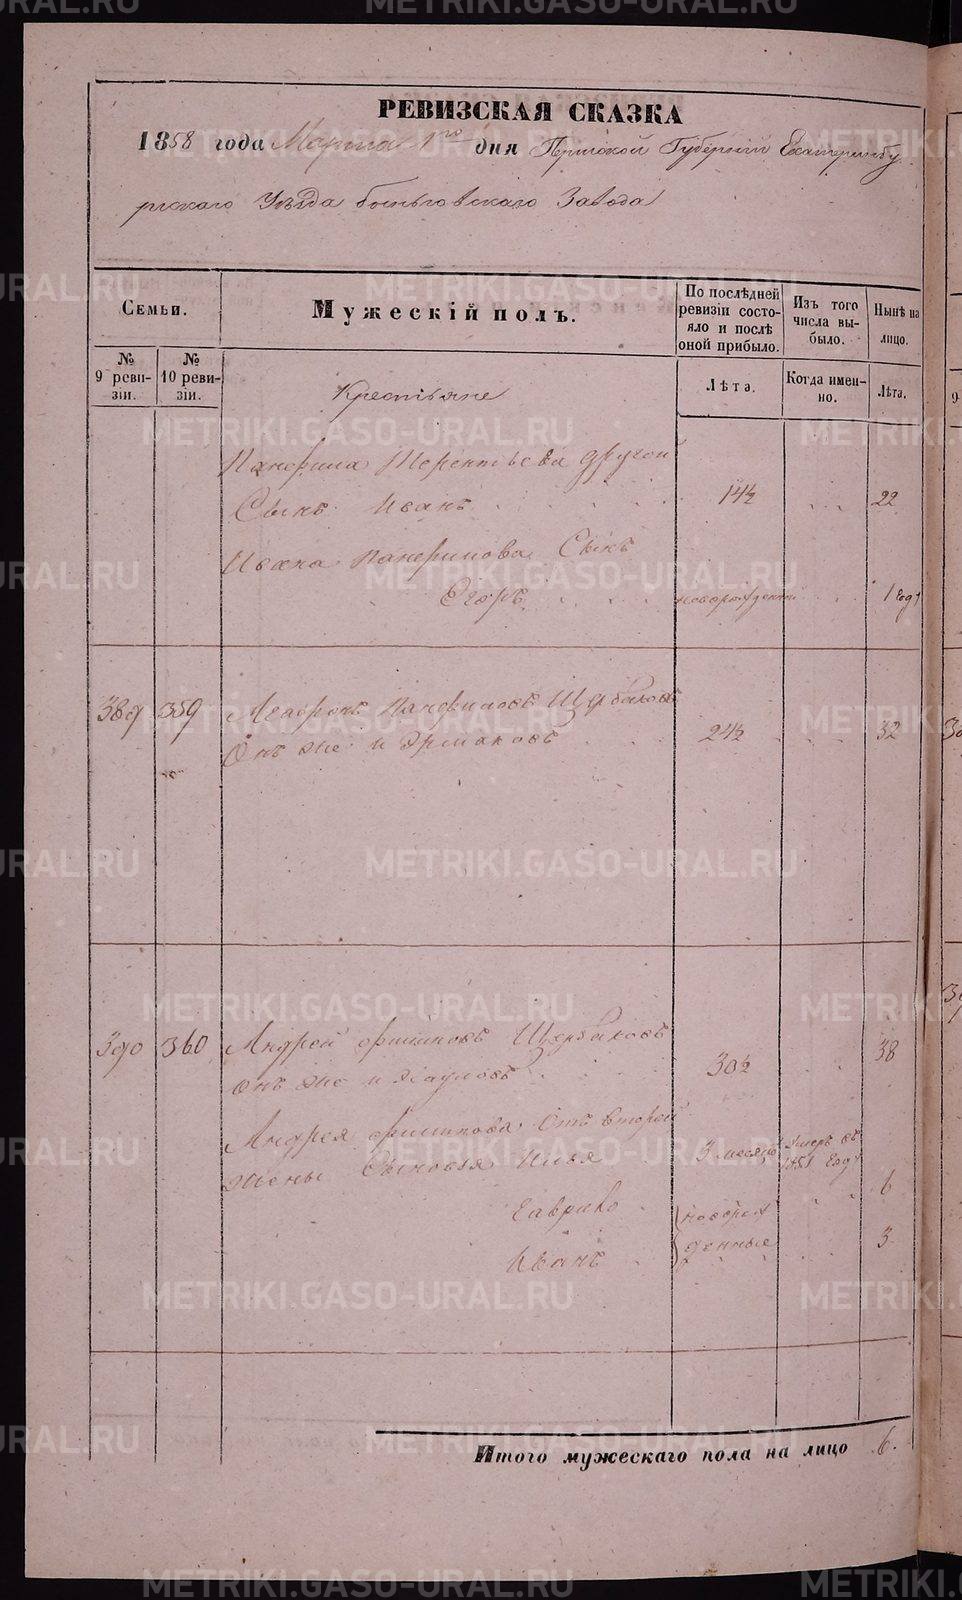 РЕВИЗСКАЯ СКАЗКА
1858 года Марта 1го дня Пермской Губерніи Екатеринбу
ргскаго Уѣзда Боеньговскаго Завода
Семьи.
№ 9 ревизіи.
№ 10 ревизіи.
Мужескій полъ.
По послѣдней
ревизіи состо-
яло и послѣ
оной прибыло.
Изъ того
числа вы-
было.
Нынѣ на
лицо.
Лѣта.
Когда имен-
но.
Лѣта.
Крестьяне
Панфила Терентьева другой
Сынъ Иванъ 14½ 22
Ивана Панфилова Сынъ
Егоръ новорожденный 1 год
389 359 Панфиловъ Щербаковъ
Онъ же и Ермаковъ 24½ 32
390 360 Андрей Филиповъ Щербаковъ 38
Онъ же и 30½
Андрея Филипова Отъ второй
жены Сыновья Илья 3 месяц умеръ въ 1851 году
Гаврило новорож 6
Иванъ денные 3
Итого мужескаго пола на лицо 6.
METRIKI.GASO-URAL.RU